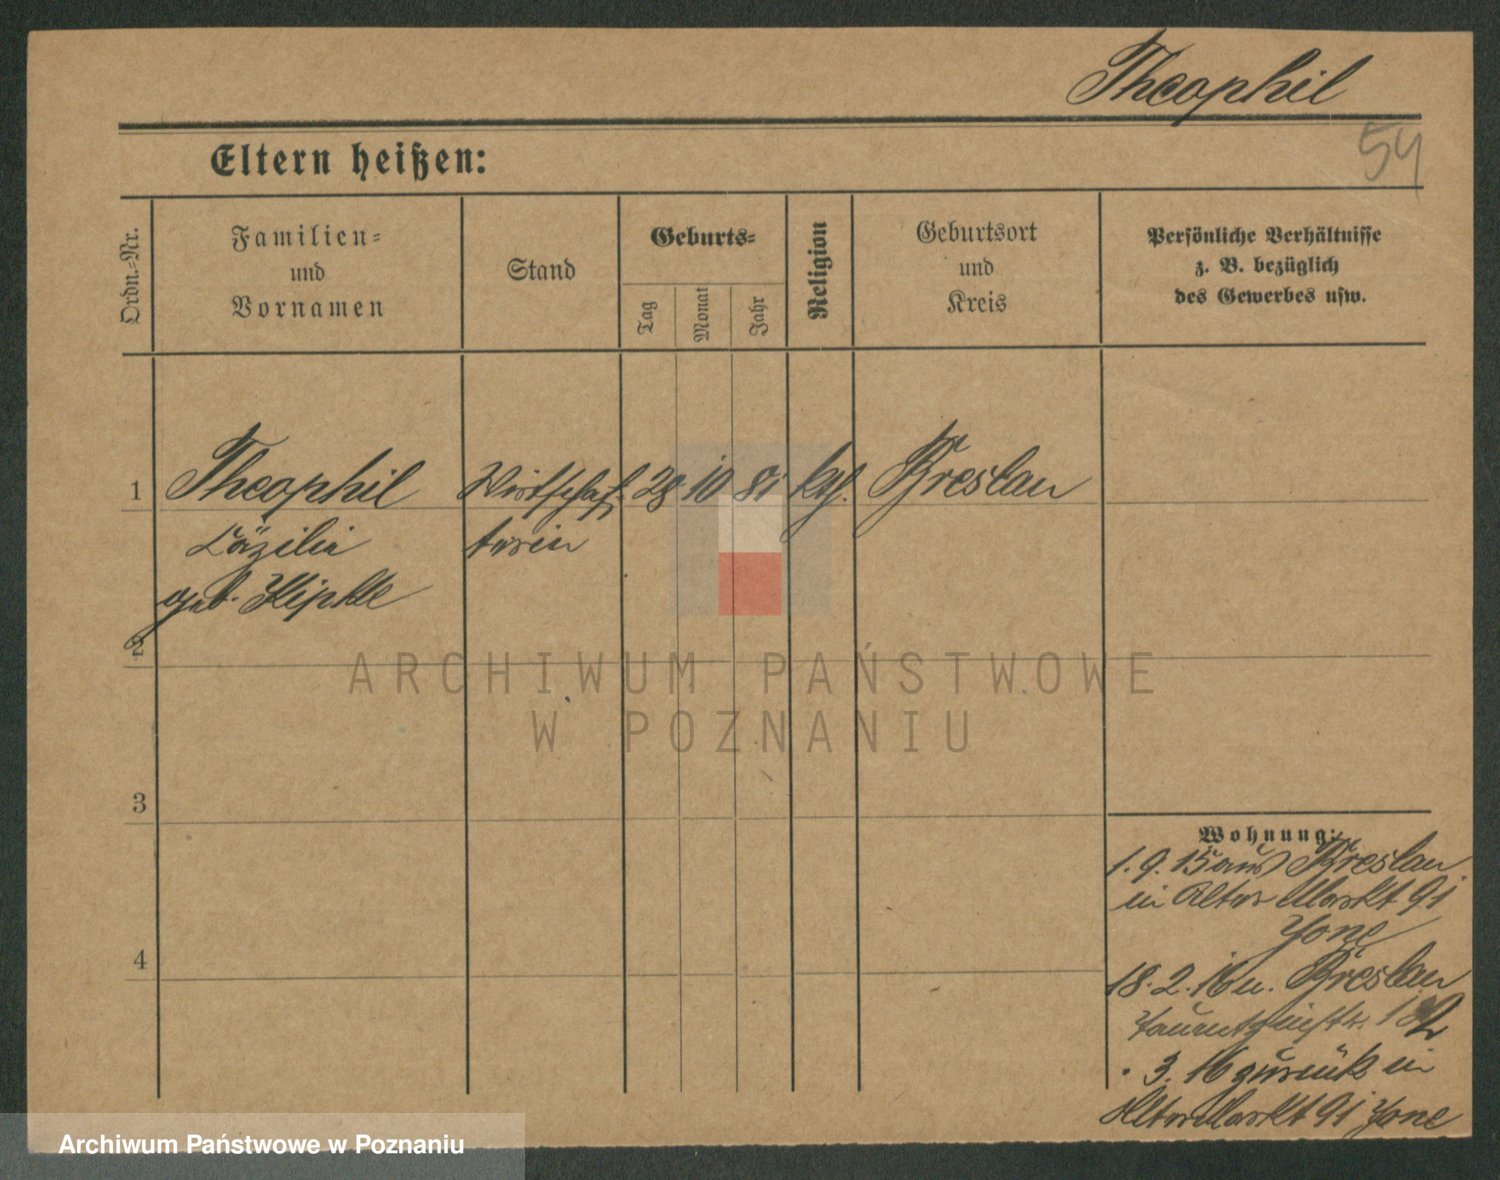 Theophil
54
Eltern heißen:
Ordn.-Nr.
Familien-
und
Vornamen
Stand
Geburts-
Tag
Monat
Jahr
Religion
Geburtsort
und
Kreis
Persönliche Verhältnisse
z. B. bezüglich
des Gewerbes usw.
1
Theophil
Wirtschaf-
28
10
81
kth.
Breslau
Cäzilie
terin
geb. Kipke
2
ARCHIWUM PAŃSTWOWE
W POZNANIU
3
Wohnung:
1. 9. 15 aus Breslau
in Alter Markt 91
4
18. 2. 16 n. Breslau
Tauentzienstr.
3. 16 zurück in
Alter Markt 91
Archiwum Państwowe w Poznaniu